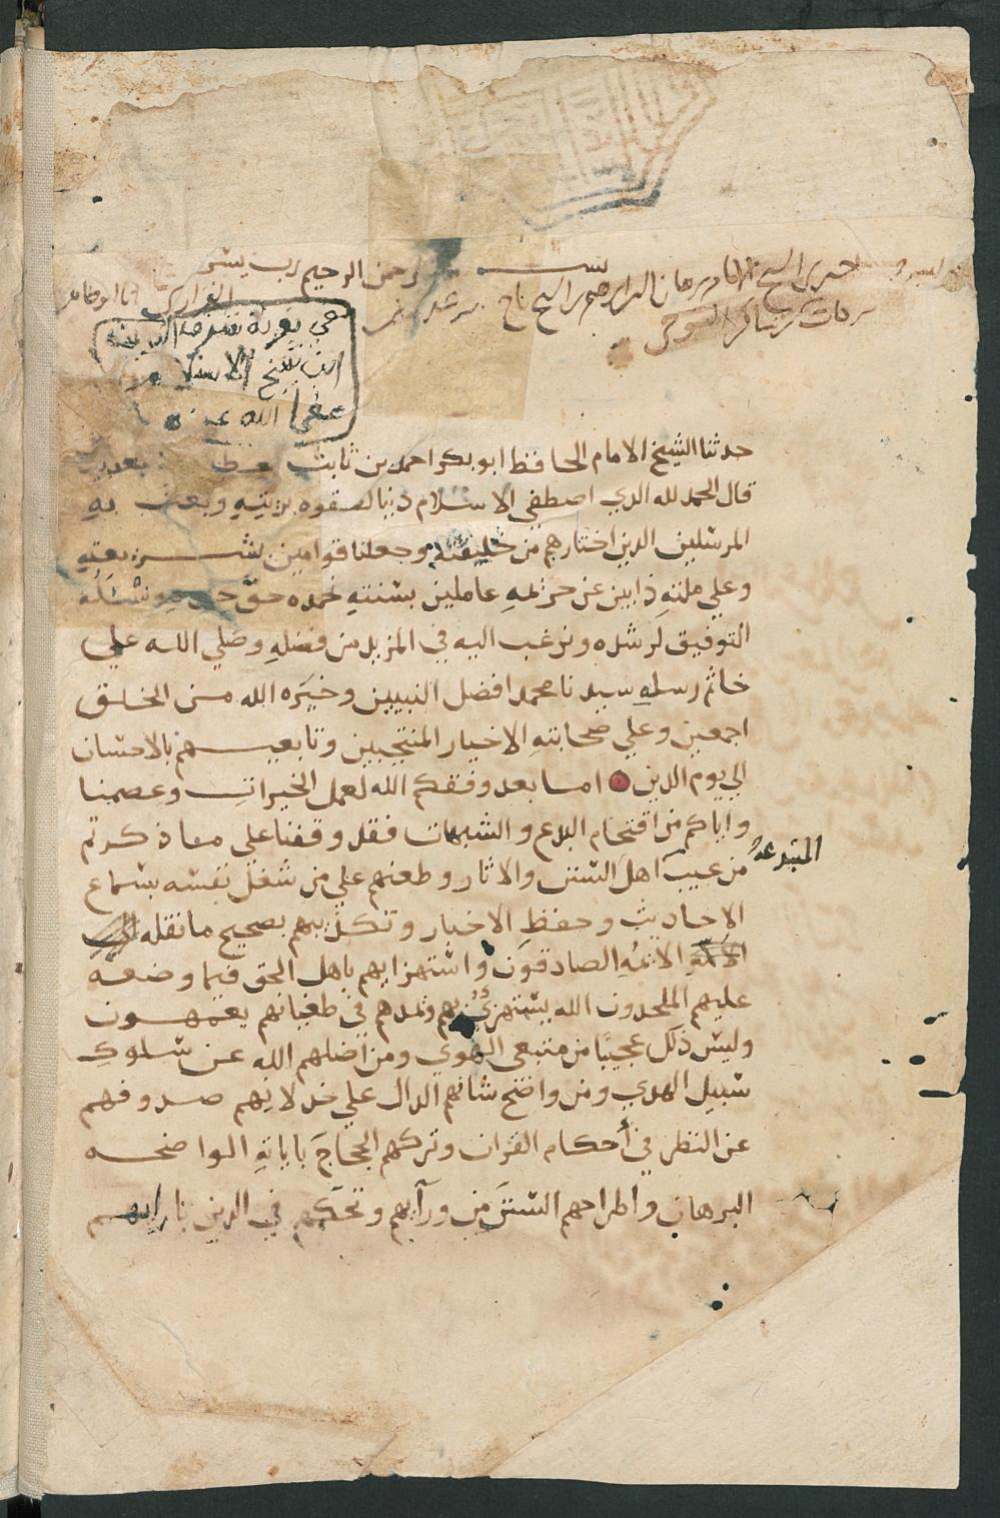 بسم الله الرحمن الرحيم رب يسر
اخبرني الشيخ الامام برهان الدين ابرهيم بن الشيخ تاج الفزاري انا ابو
بركات بن شاكر
ابن شيخ الاسلام
عفا الله عنه
حدثنا الشيخ الامام الحافظ ابو بكر احمد بن ثابت
قال الحمد لله الذي اصطفى الاسلام دينا لصفوه بريتهِ وبعث بهِ
المرسلين الذين اختارهم من خليقته وجعلنا قوامين بشريعتهِ
وعلي ملتهِ ذابين عن حرمهِ عاملين بسنتهِ نحمده حقّ حمده ونسئله
التوفيق لرشده ونرغب اليه في المزيد من فضلهِ وصلي الله علي
خاتم رسله سيدنا محمد افضل النبيين وخيَره الله من الخلق
اجمعين وعلي صحابته الاخيار المنتجبين وتابعيهم بالاحسان
الي يوم الدين اما بعد وفقكم الله لعمل الخيرات وعصمنا
واياكم من اقتحام البدع والشبهات فقد وقفنا على ما ذكرتم
من عيب المبتدعة اهلَ السنن والاثار وطعنهم علي من شغل نفسه بسماع
الاحاديث وحفظِ الاخبار وتكذيبهم بصحيح ما نقله
الائمه الصادقون واستهزايهم باهل الحق فيما وضعه
عليهم الملحدون الله يستهزئ بهم ويمدهم في طغيانهم يعمهون
وليس ذلك عجيبًا من متبعي الهوي ومن اضلهم الله عن سلوك
سبيل الهدي ومن واضح شانهم الدال علي خذلانهم صدوفهم
عن النظر في أحكام القران وتركهم الحجاجَ باياتهِ الواضحه
البرهان واطراحهم السننَ من ورآيهم وتحكمهم في الدين بارايهم